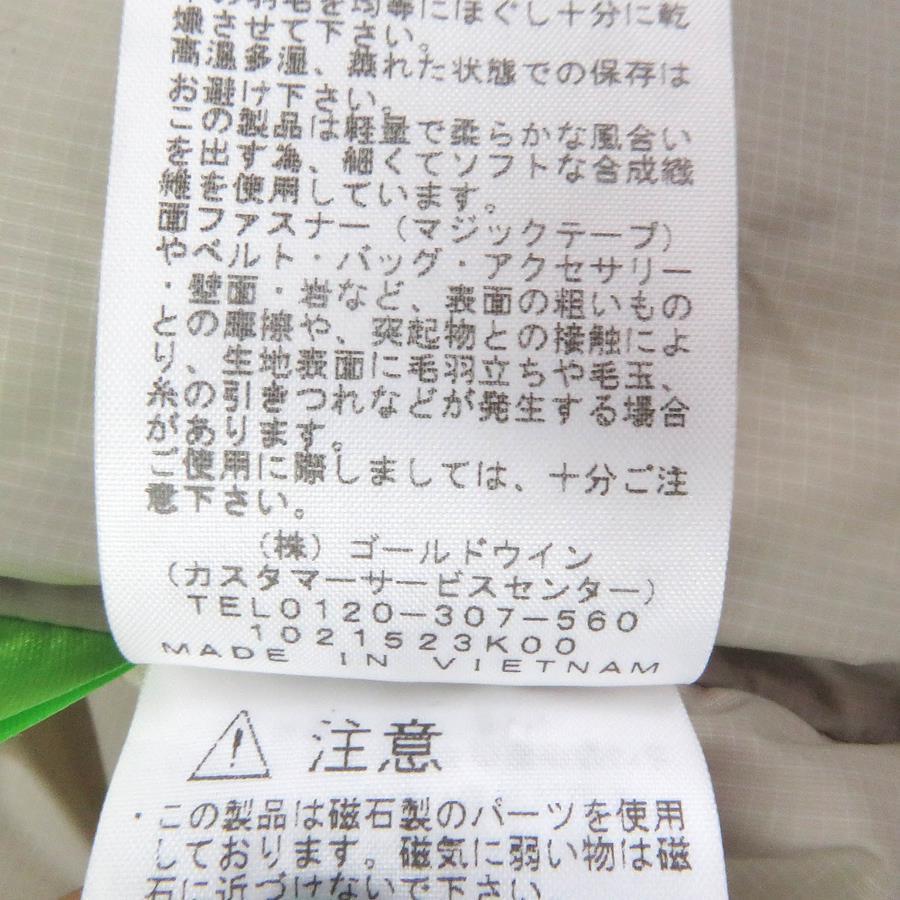 の羽毛を均等にほぐし十分に乾
燥させて下さい。
高温多湿、蒸れた状態での保存は
お避け下さい。
この製品は軽量で柔らかな風合い
を出す為、細くてソフトな合成繊
維を使用しています。
面ファスナー（マジックテープ）
やベルト・バッグ・アクセサリー
・壁面・岩など、表面の粗いもの
との摩擦や、突起物との接触によ
り、生地表面に毛羽立ちや毛玉、
糸の引きつれなどが発生する場合
があります。
ご使用に際しましては、十分ご注
意下さい。
（株）ゴールドウイン
（カスタマーサービスセンター）
TEL0120-307-560
1021523K00
MADE IN VIETNAM
注意
・この製品は磁石製のパーツを使用
しております。磁気に弱い物は磁
石に近づけないで下さい